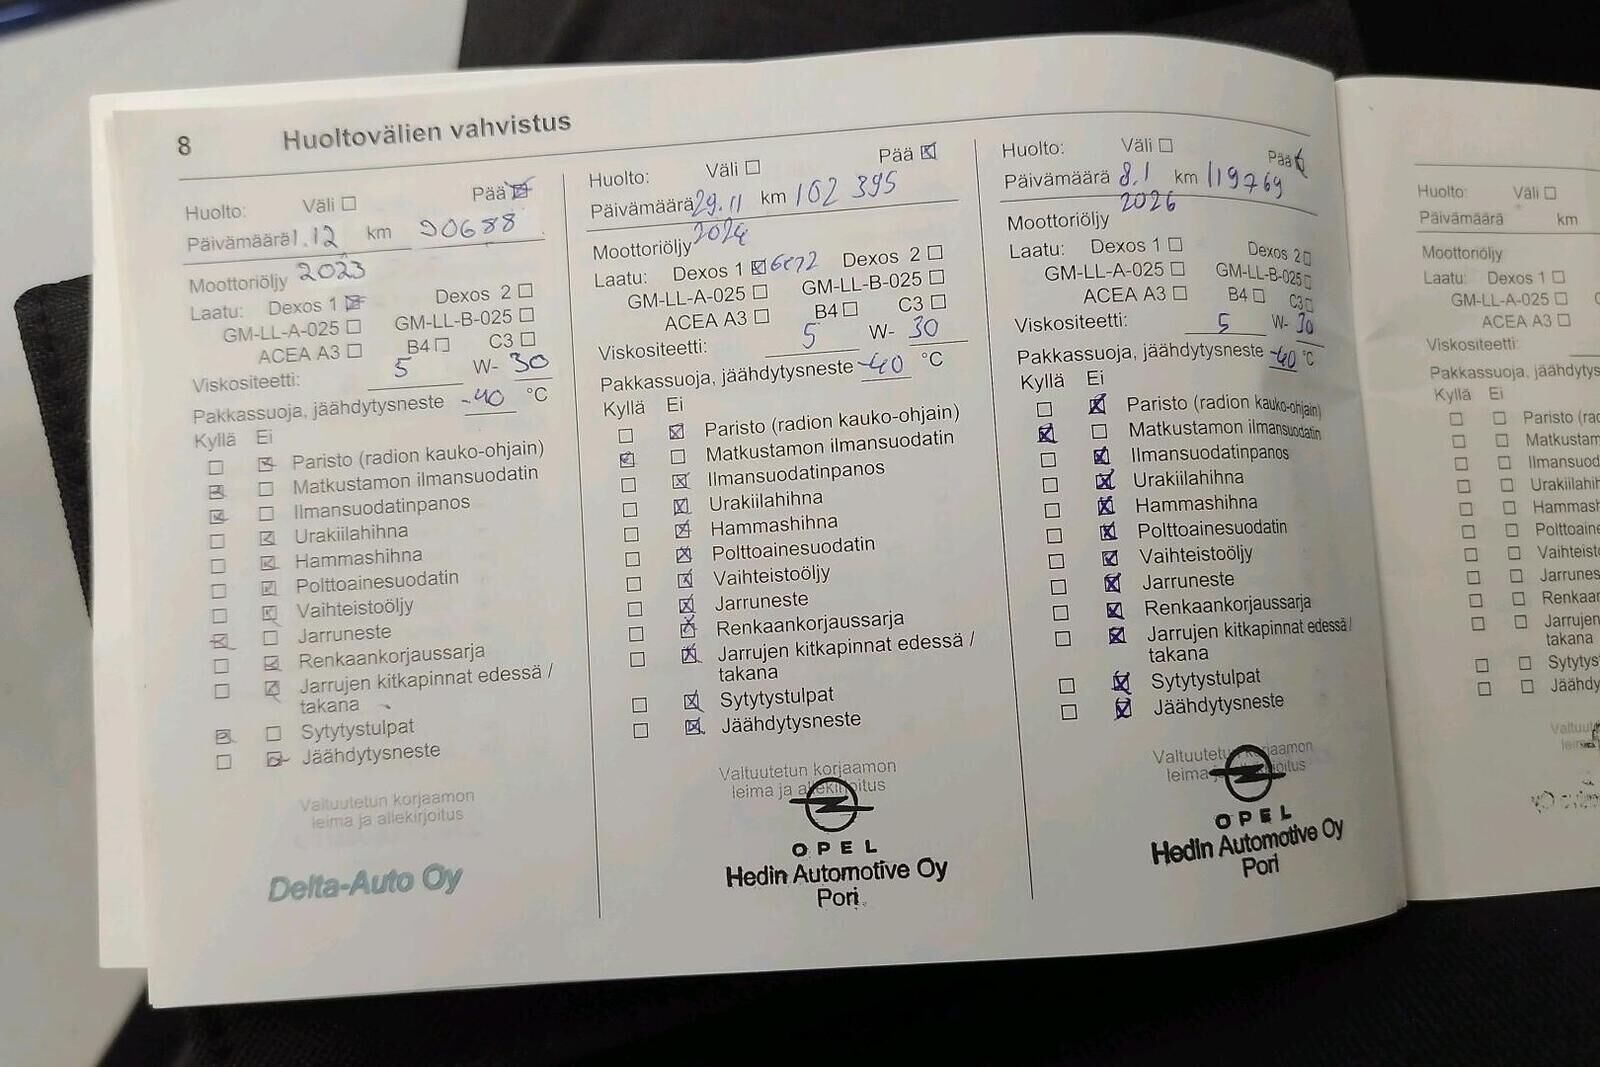 8 Huoltovälien vahvistus
Huolto: Väli ☐ Pää ☒
Päivämäärä 1.12 km 90688
Moottoriöljy 2023
Laatu: Dexos 1 ☒ Dexos 2 ☐
GM-LL-A-025 ☐ GM-LL-B-025 ☐
ACEA A3 ☐ B4 ☐ C3 ☐
Viskositeetti: 5 W- 30
Pakkassuoja, jäähdytysneste -40 °C
Kyllä Ei
☐ ☒ Paristo (radion kauko-ohjain)
☒ ☐ Matkustamon ilmansuodatin
☒ ☐ Ilmansuodatinpanos
☐ ☒ Urakiilahihna
☐ ☒ Hammashihna
☐ ☒ Polttoainesuodatin
☐ ☒ Vaihteistoöljy
☒ ☐ Jarruneste
☐ ☒ Renkaankorjaussarja
☐ ☒ Jarrujen kitkapinnat edessä /
takana
☒ ☐ Sytytystulpat
☐ ☒ Jäähdytysneste
Valtuutetun korjaamon
leima ja allekirjoitus
Delta-Auto Oy
Huolto: Väli ☐ Pää ☒
Päivämäärä 29.11 km 102 395
Moottoriöljy 2024
Laatu: Dexos 1 ☒ Dexos 2 ☐
GM-LL-A-025 ☐ GM-LL-B-025 ☐
ACEA A3 ☐ B4 ☐ C3 ☐
Viskositeetti: 5 W- 30
Pakkassuoja, jäähdytysneste -40 °C
Kyllä Ei
☐ ☒ Paristo (radion kauko-ohjain)
☒ ☐ Matkustamon ilmansuodatin
☐ ☒ Ilmansuodatinpanos
☐ ☒ Urakiilahihna
☐ ☒ Hammashihna
☐ ☒ Polttoainesuodatin
☐ ☒ Vaihteistoöljy
☐ ☒ Jarruneste
☐ ☒ Renkaankorjaussarja
☐ ☒ Jarrujen kitkapinnat edessä /
takana
☐ ☒ Sytytystulpat
☐ ☒ Jäähdytysneste
Valtuutetun korjaamon
leima ja allekirjoitus
OPEL
Hedin Automotive Oy
Pori
Huolto: Väli ☐ Pää ☒
Päivämäärä 8.1 km 119769
2026
Moottoriöljy
Laatu: Dexos 1 ☐ Dexos 2 ☐
GM-LL-A-025 ☐ GM-LL-B-025 ☐
ACEA A3 ☐ B4 ☐ C3 ☐
Viskositeetti: 5 W- 30
Pakkassuoja, jäähdytysneste -40 °C
Kyllä Ei
☐ ☒ Paristo (radion kauko-ohjain)
☒ ☐ Matkustamon ilmansuodatin
☐ ☒ Ilmansuodatinpanos
☐ ☒ Urakiilahihna
☐ ☒ Hammashihna
☐ ☒ Polttoainesuodatin
☐ ☒ Vaihteistoöljy
☐ ☒ Jarruneste
☐ ☒ Renkaankorjaussarja
☐ ☒ Jarrujen kitkapinnat edessä /
takana
☐ ☒ Sytytystulpat
☐ ☒ Jäähdytysneste
Valtuutetun korjaamon
leima ja allekirjoitus
OPEL
Hedin Automotive Oy
Pori
Huolto: Väli ☐
Päivämäärä km
Moottoriöljy
Laatu: Dexos 1 ☐
GM-LL-A-025 ☐
ACEA A3 ☐
Viskositeetti:
Pakkassuoja, jäähdytys
Kyllä Ei
☐ ☐ Paristo (rad
☐ ☐ Matkustam
☐ ☐ Ilmansuod
☐ ☐ Urakiilah
☐ ☐ Hammash
☐ ☐ Polttoaine
☐ ☐ Vaihteisto
☐ ☐ Jarrunes
☐ ☐ Renkaan
☐ ☐ Jarrujen
takana
☐ ☐ Sytytys
☐ ☐ Jäähdy